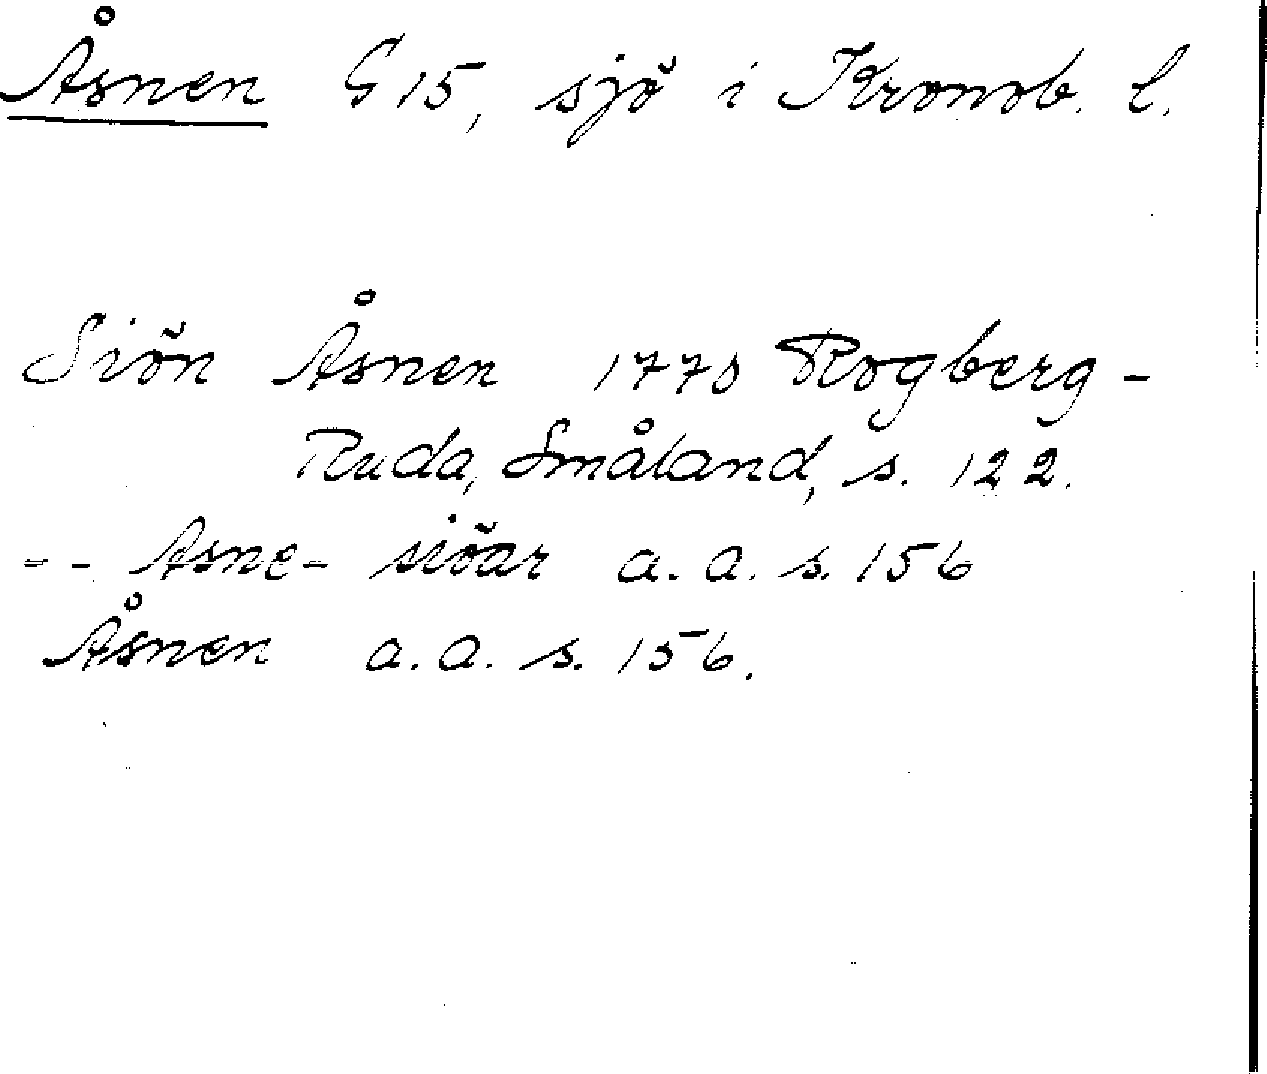 Åsnen G 15, sjö i Kronob. l.
Siön Åsnen 1770 Rogberg-
Ruda, Småland, s. 122.
-- Asne- siöar a. a. s. 156
Åsnen a. a. s. 156.